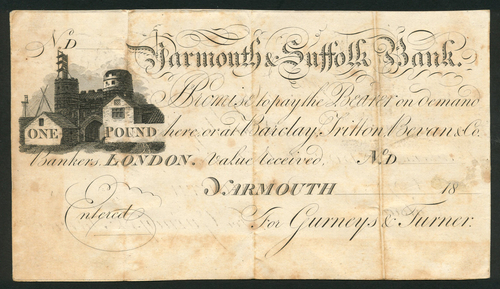 No D
Yarmouth & Suffolk Bank.
I Promise to pay the Bearer on demand
ONE POUND here, or at Barclay, Tritton, Bevan & Co.
Bankers, LONDON. Value received. No D
YARMOUTH 18
Entered For Gurneys & Turner.